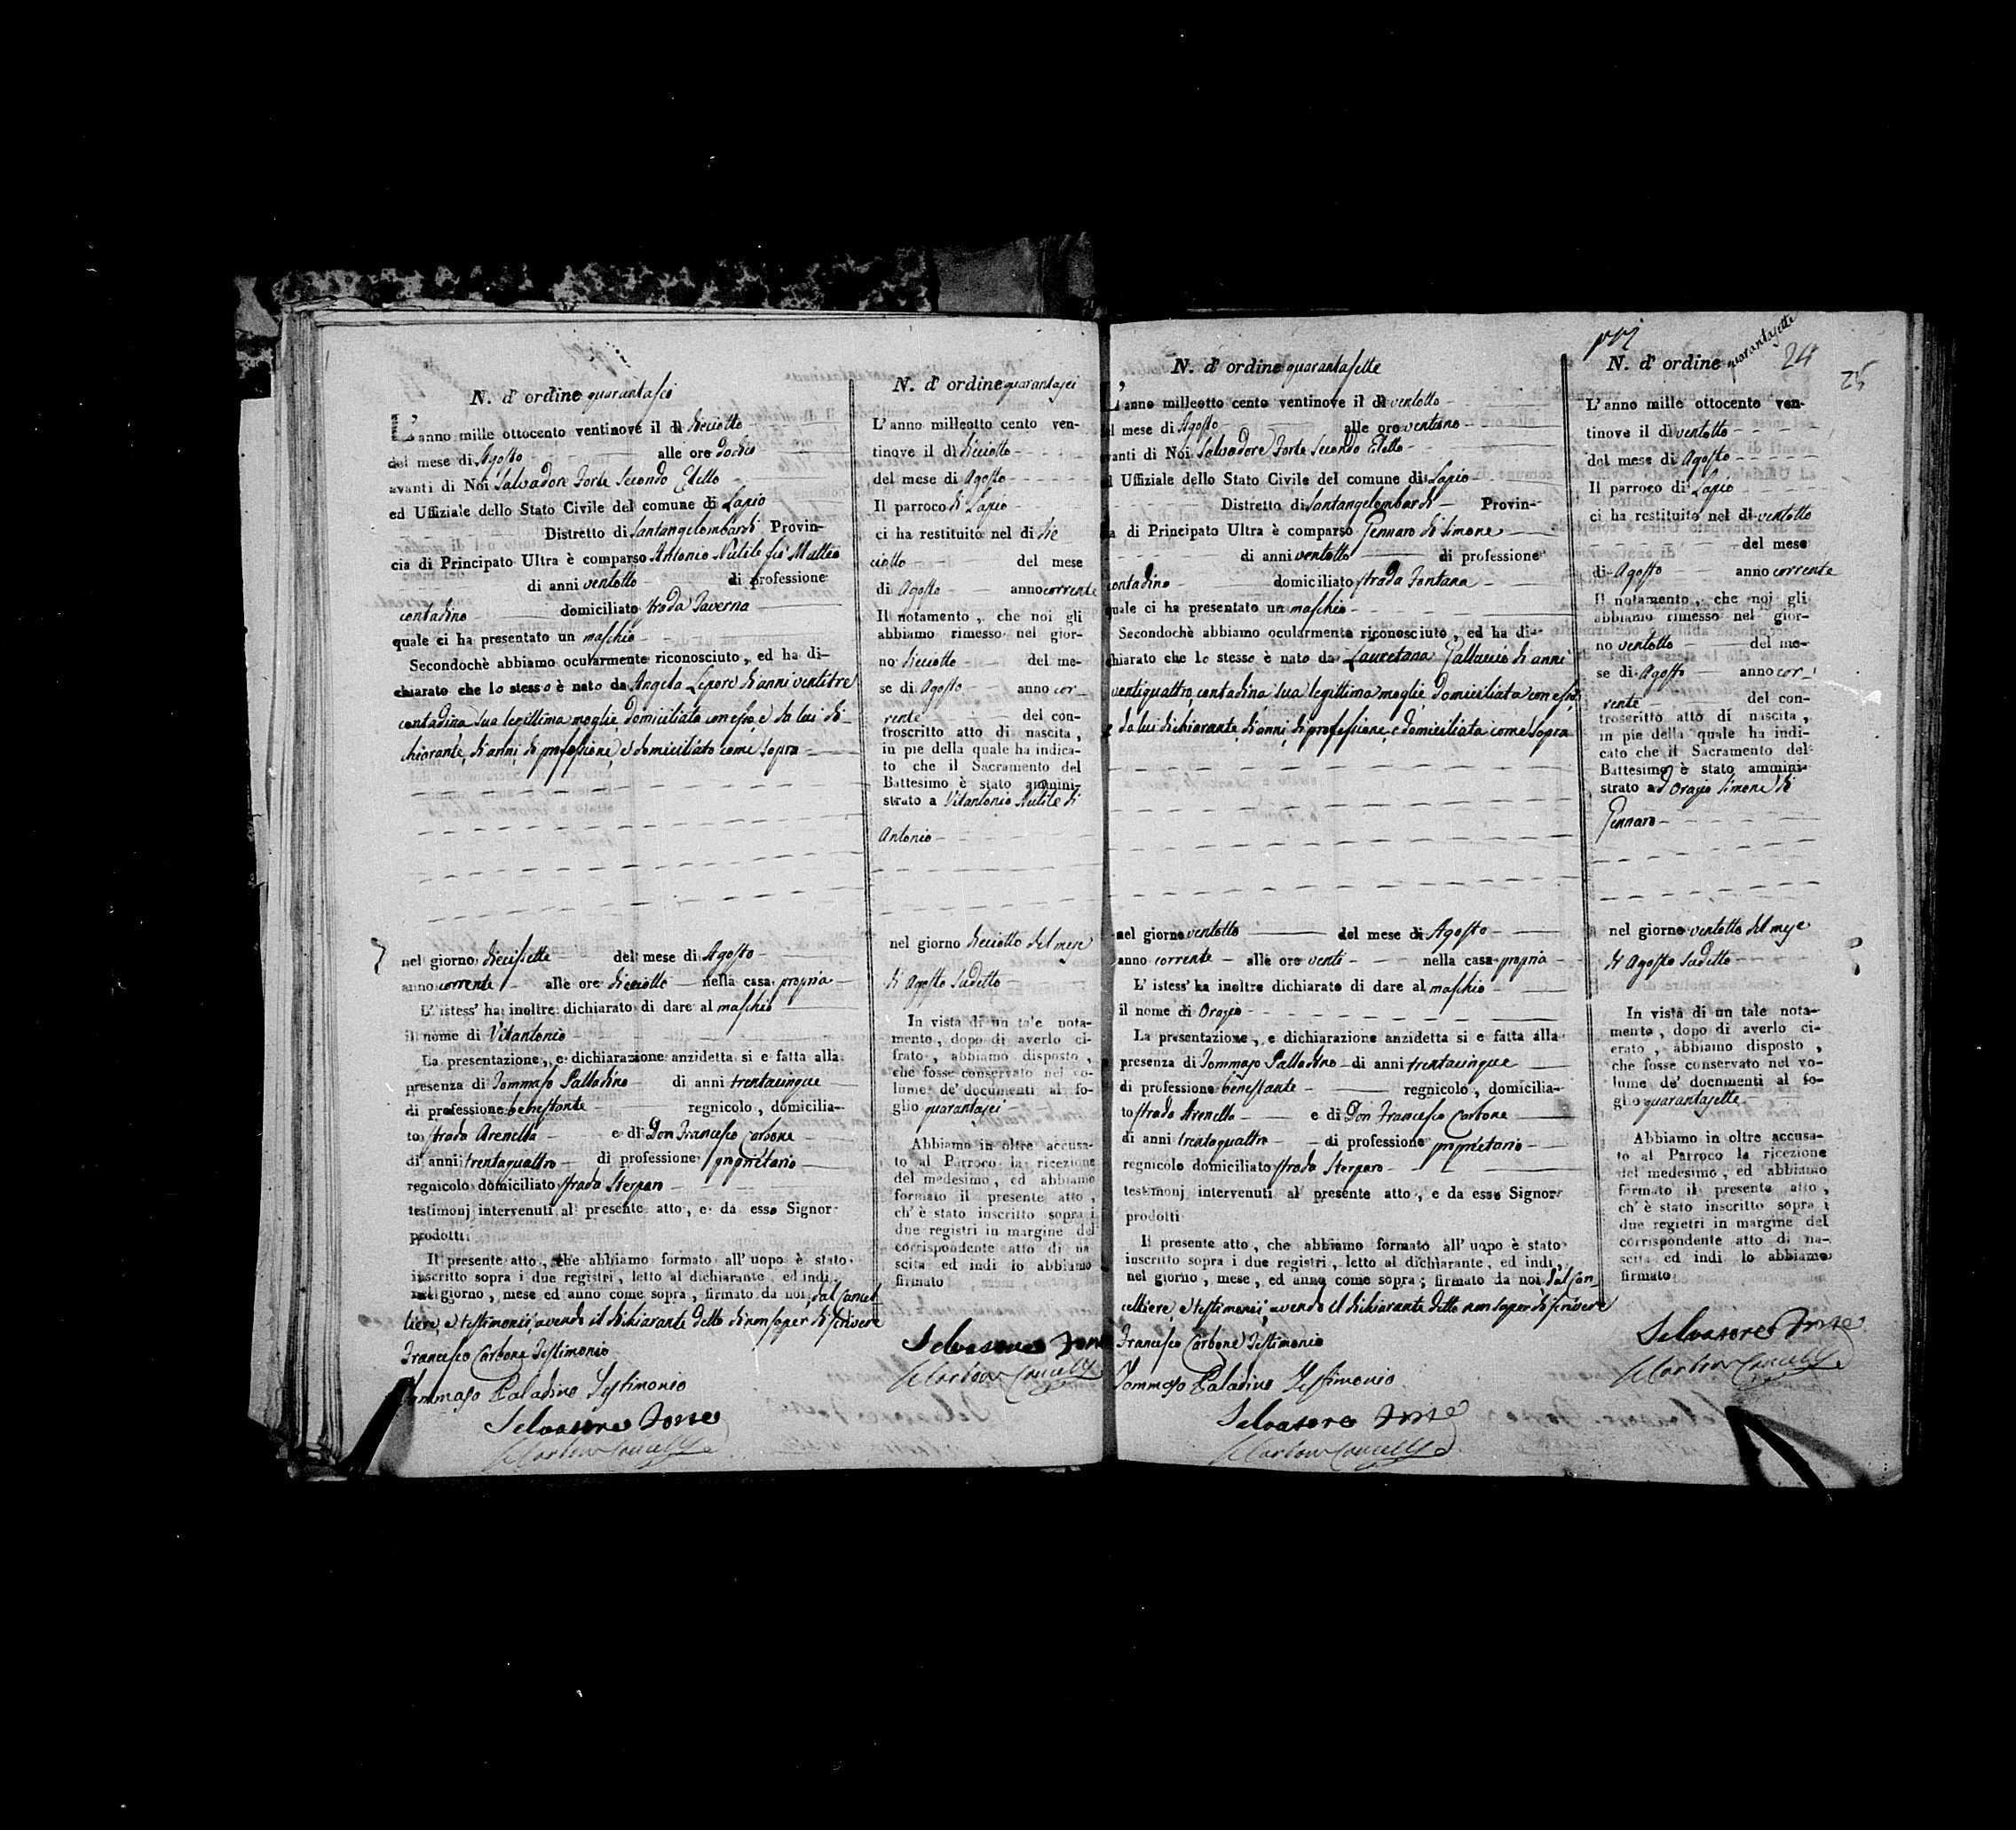 N. d' ordine quarantasei
L' anno mille ottocento ventinove il dì dieciotto
del mese di Agosto alle ore dodici
avanti di Noi Salvadore Forte Secondo Eletto
ed Uffiziale dello Stato Civile del comune di Lapio
Distretto di Santangelombardi Provin-
cia di Principato Ultra è comparso Antonio Nutile fu Matteo
di anni ventotto di professione
contadino domiciliato strada Taverna
quale ci ha presentato un maschio
Secondochè abbiamo ocularmente riconosciuto, ed ha di-
chiarato che lo stesso è nato da Angela Lepore di anni ventitre
contadina sua legittima moglie domiciliata con esso, e da lui di-
chiarante, di anni, di professione, e domiciliato come sopra
nel giorno diecisette del mese di Agosto
anno corrente alle ore dieciotto nella casa propria
L' istess' ha inoltre dichiarato di dare al maschio
il nome di Vitantonio
La presentazione, e dichiarazione anzidetta si e fatta alla
presenza di Tommaso Palladino di anni trentacinque
di professione benestante regnicolo, domicilia-
to strada Arenella e di Don Francesco Carbone
di anni trentaquattro di professione proprietario
regnicolo domiciliato strada Sterparo
testimonj intervenuti al presente atto, e da esso Signor
prodotti
Il presente atto, che abbiamo formato all' uopo è stato
inscritto sopra i due registri, letto al dichiarante, ed indi,
nel giorno, mese ed anno come sopra, firmato da noi, dal Cancel
liere, e testimonii, avendo il dichiarante detto di non saper di scrivere
Francesco Carbone Testimonio
Tommaso Paladino Testimonio
Salvatore Forte
Carbone Cancelle
N. d' ordine quarantasei
L' anno milleotto cento ven-
tinove il dì dieciotto
del mese di Agosto
Il parroco di Lapio
ci ha restituito nel dì die
ciotto del mese
di Agosto anno corrente
Il notamento, che noi gli
abbiamo rimesso nel gior-
no dieciotto del me-
se di Agosto anno cor
rente del con-
troscritto atto di nascita,
in pie della quale ha indica-
to che il Sacramento del
Battesimo è stato ammini-
strato a Vitantonio Nutile di
Antonio
nel giorno dieciotto del mese
di Agosto sudetto
In vista di un tale nota-
mento, dopo di averlo ci-
frato, abbiamo disposto,
che fosse conservato nel vo-
lume de' documenti al fo-
glio quarantasei
Abbiamo in oltre accusa-
to al Parroco la ricezione
del medesimo, ed abbiamo
formato il presente atto,
ch' è stato inscritto sopra i
due registri in margine del
corrispondente atto di na
scita ed indi lo abbiamo
firmato
Salvatore Forte
Carbone Cancelle
N. d' ordine quarantasette
L' anno milleotto cento ventinove il dì ventotto
del mese di Agosto alle ore ventuno
avanti di Noi Salvadore Forte Secondo Eletto
ed Uffiziale dello Stato Civile del comune di Lapio
Distretto di Santangelombardi Provin-
cia di Principato Ultra è comparso Gennaro di Simone
di anni ventotto di professione
contadino domiciliato strada Fontana
quale ci ha presentato un maschio
Secondochè abbiamo ocularmente riconosciuto, ed ha di-
chiarato che lo stesso è nato da Lauretana Galluccio di anni
ventiquattro, contadina, sua legittima moglie, domiciliata con esso,
e da lui dichiarante, di anni, di professione, e domiciliata come sopra
nel giorno ventotto del mese di Agosto
anno corrente alle ore venti nella casa propria
L' istess' ha inoltre dichiarato di dare al maschio
il nome di Orazio
La presentazione, e dichiarazione anzidetta si e fatta alla
presenza di Tommaso Palladino di anni trentacinque
di professione benestante regnicolo, domicilia-
to strada Arenella e di Don Francesco Carbone
di anni trentaquattro di professione proprietario
regnicolo domiciliato strada Sterparo
testimonj intervenuti al presente atto, e da esso Signor
prodotti
Il presente atto, che abbiamo formato all' uopo è stato
inscritto sopra i due registri, letto al dichiarante, ed indi,
nel giorno, mese, ed anno come sopra; firmato da noi, dal Can-
celliere, e testimonii, avendo il dichiarante detto non saper di scrivere
Francesco Carbone Testimonio
Tommaso Paladino Testimonio
Salvatore Forte
Carbone Cancelle
N. d' ordine quarantasette
24
25
L' anno mille ottocento ven-
tinove il dì ventotto
del mese di Agosto
Il parroco di Lapio
ci ha restituito nel dì ventotto
del mese
di Agosto anno corrente
Il notamento, che noi gli
abbiamo rimesso nel gior-
no ventotto del me-
se di Agosto anno cor
rente del con-
troscritto atto di nascita,
in pie della quale ha indi-
cato che il Sacramento del
Battesimo è stato ammini-
strato ad Orazio Simone di
Gennaro
nel giorno ventotto del mese
di Agosto sudetto
In vista di un tale nota-
mento, dopo di averlo ci-
erato, abbiamo disposto,
che fosse conservato nel vo-
lume de' documenti al fo-
glio quarantasette
Abbiamo in oltre accusa-
to al Parroco la ricezione
del medesimo, ed abbiamo
formato il presente atto,
ch' è stato inscritto sopra i
due registri in margine del
corrispondente atto di na-
scita ed indi lo abbiamo
firmato
Salvatore Forte
Carbone Cancelle